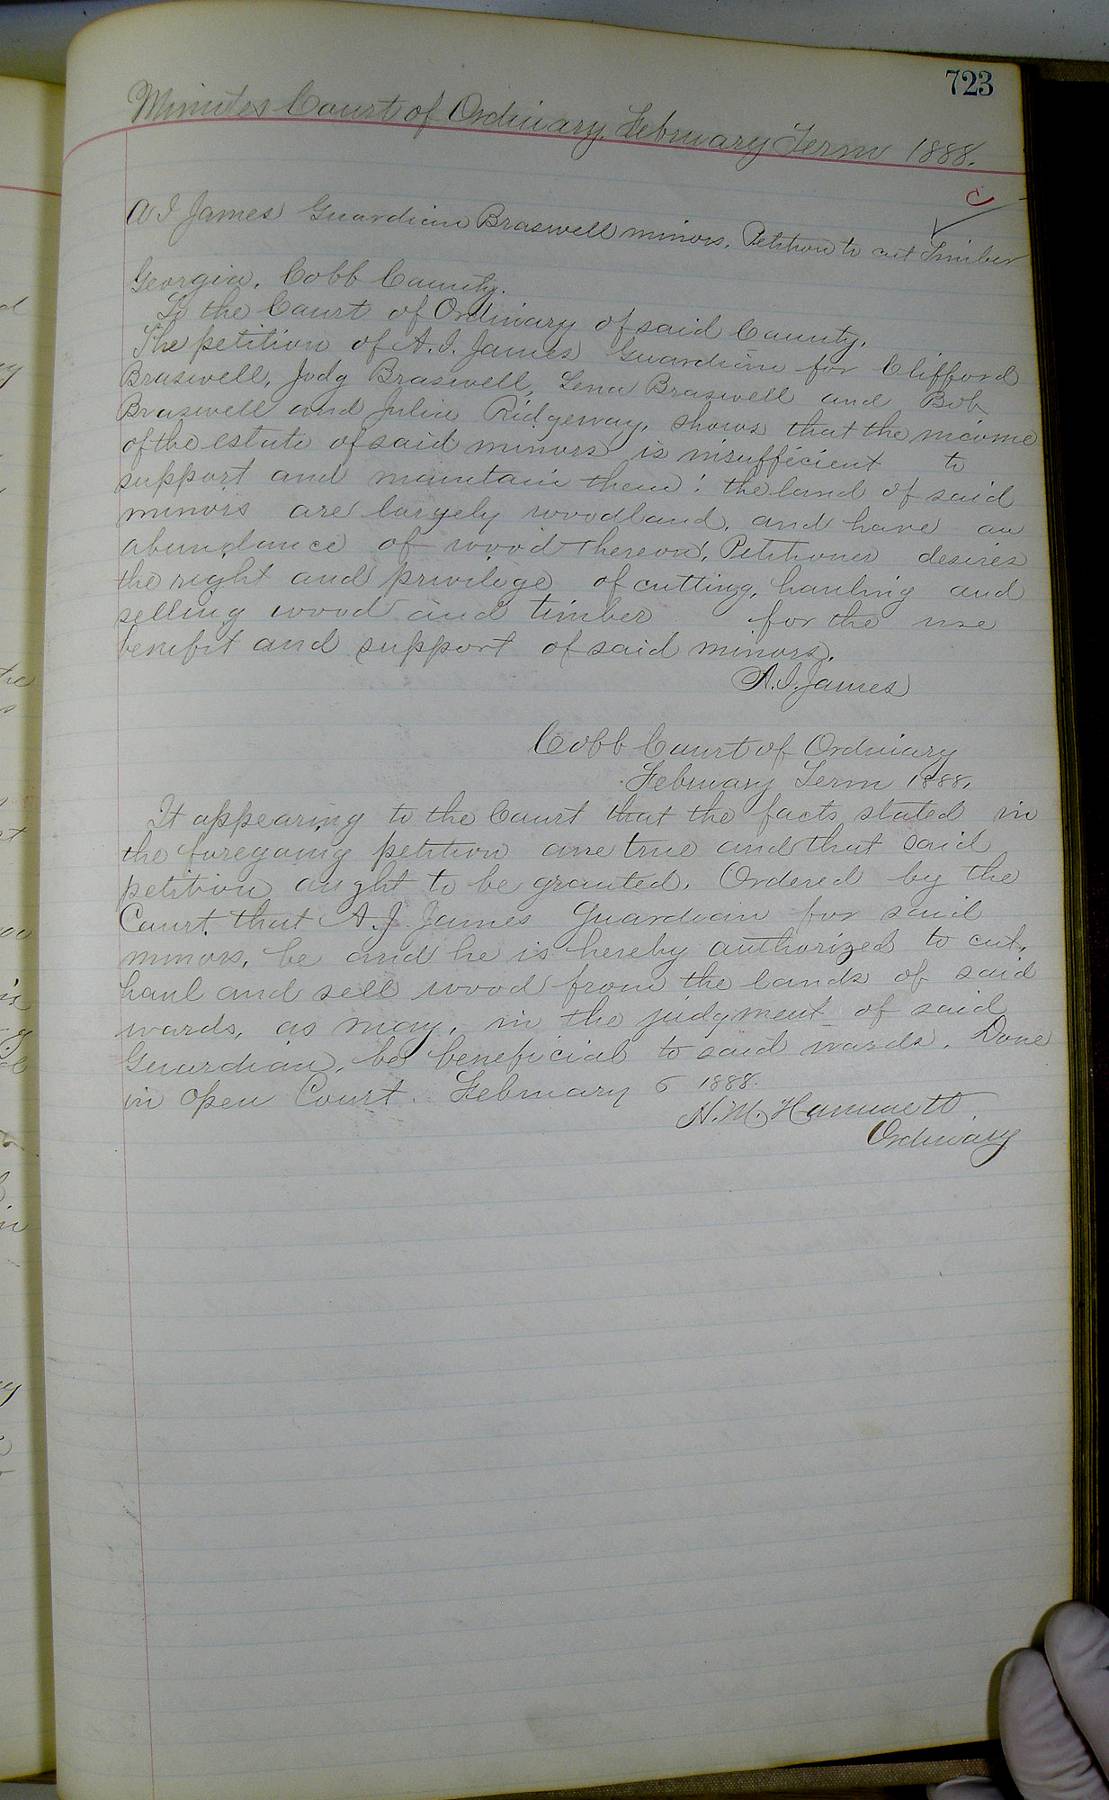 723
Minutes Court of Ordinary, February Term 1888.
C
A I James Guardian Braswell minors. Petition to cut Timber
Georgia, Cobb County.
To the Court of Ordinary of said County,
The petition of A. I. James Guardian for Clifford
Braswell, Judg Braswell, Lena Braswell and Bob
Braswell and Julia Ridgeway, shows that the income
of the estate of said minors is insufficient to
support and maintain them: the land of said
minors are largely woodland, and have an
abundance of wood thereon. Petitioner desires
the right and privilege of cutting, hauling and
selling wood and timber for the use
benefit and support of said minors.
A. I. James
Cobb Court of Ordinary
February Term 1888.
It appearing to the Court that the facts stated in
the foregoing petition are true and that said
petition aught to be granted. Ordered by the
Court that A. J. James Guardian for said
minors, be and he is hereby authorized to cut,
haul and sell wood from the lands of said
wards, as may, in the judgment of said
Guardian, be beneficial to said wards. Done
in open Court. February 6 1888.
H. M. Hammett.
Ordinary